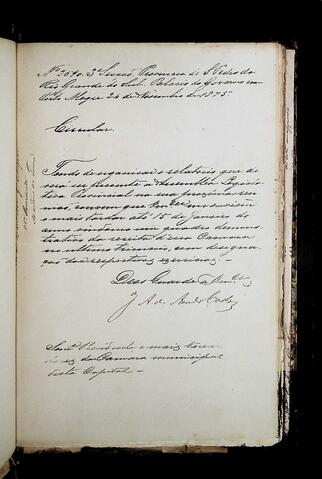 Nº 3040. 3ª Secção Provincia de S. Pedro do
Rio Grande do Sul. Palacio do Governo em
Porto Alegre 24 de Novembro de 1875
Circular
Tendo de organisar o relatorio que de
vera ser presente a Assembléa Legisla
tiva Provincial na sua proxima reu
niaõ, convem que
o mais tardar até 15 de Janeiro do
anno vindouro um quadro demons
trativo da receita d'essa Camara
no ultimo triennio, com designa
çaõ dos respectivos exercicios.
Deos Guarde a
J. A. de
Senr. Presidente e mais Verea
dores da Camara municipal
desta Capital.